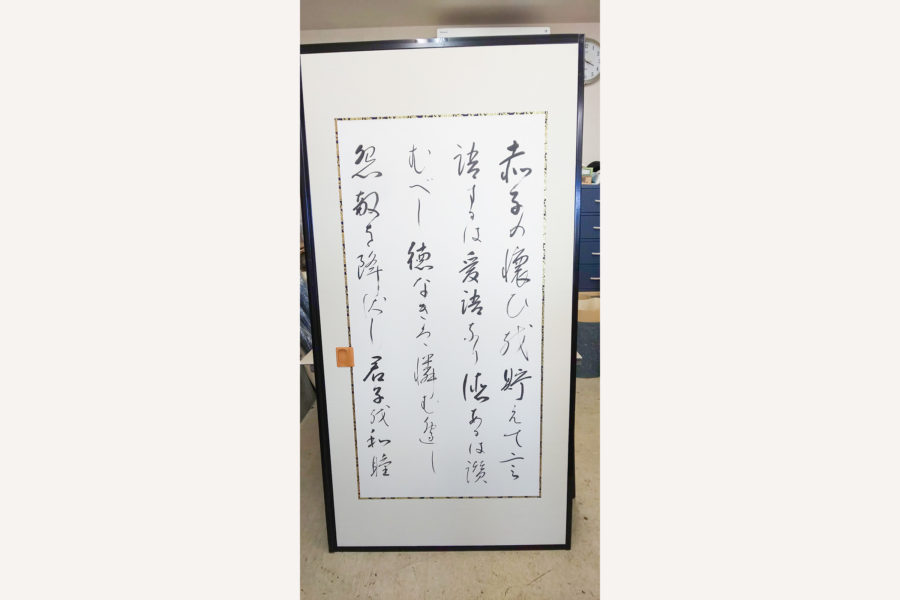 赤子の懐ひを貯えて言
語するは愛語なり徳あるは讃
むべし徳なきは憐むべし
怨敵を降伏し君子を和睦